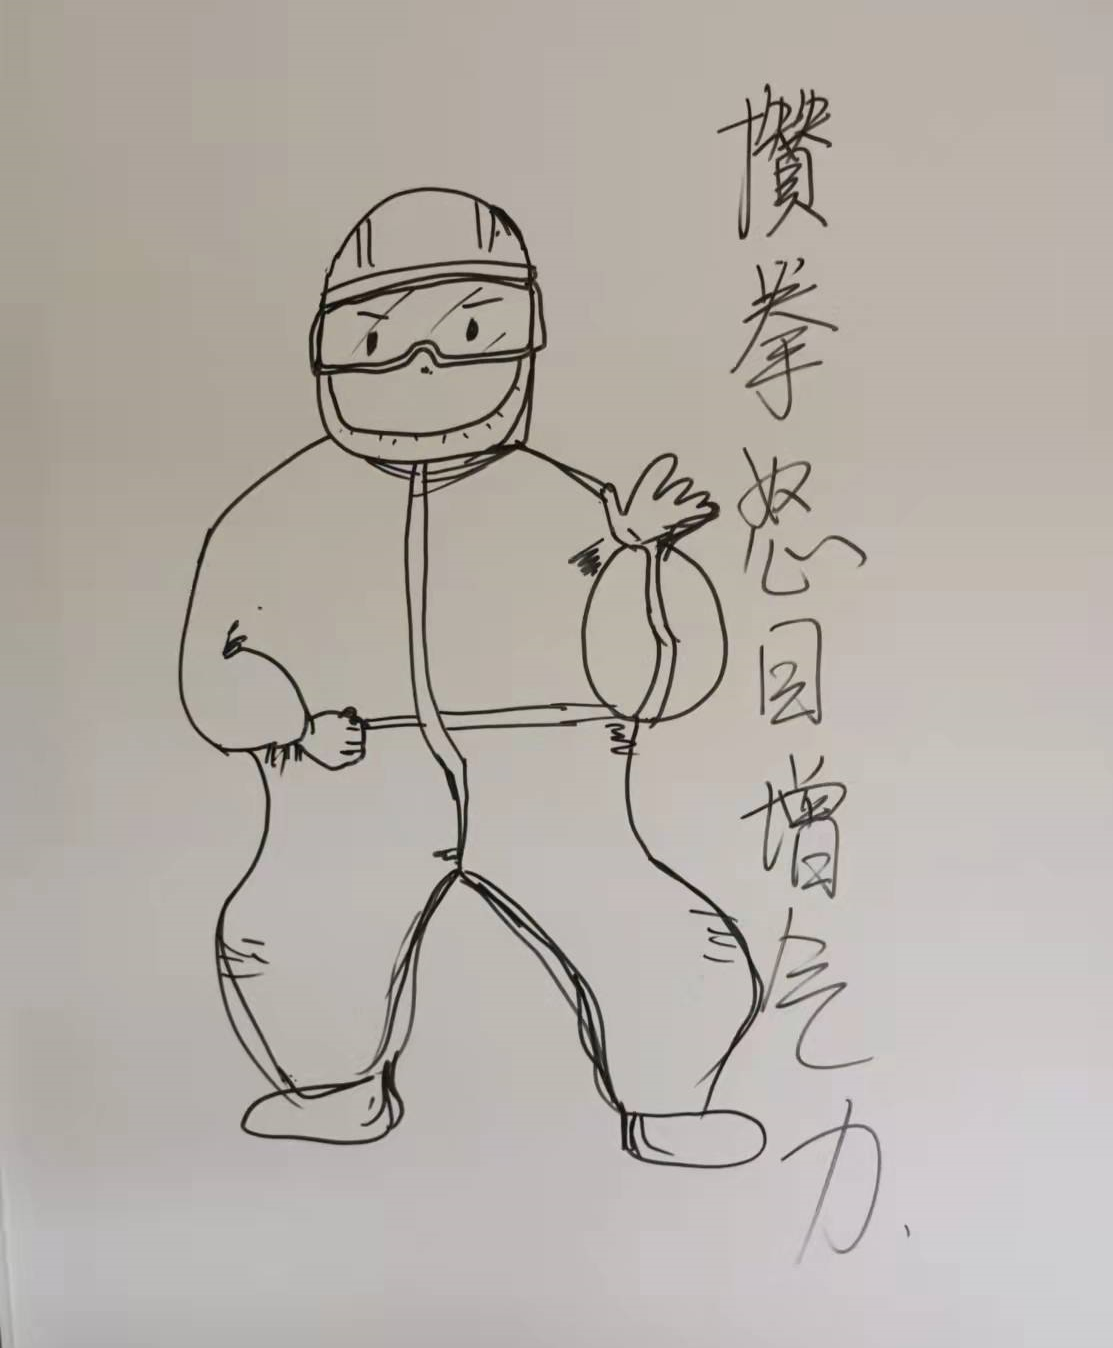 攢拳怒目增气力.